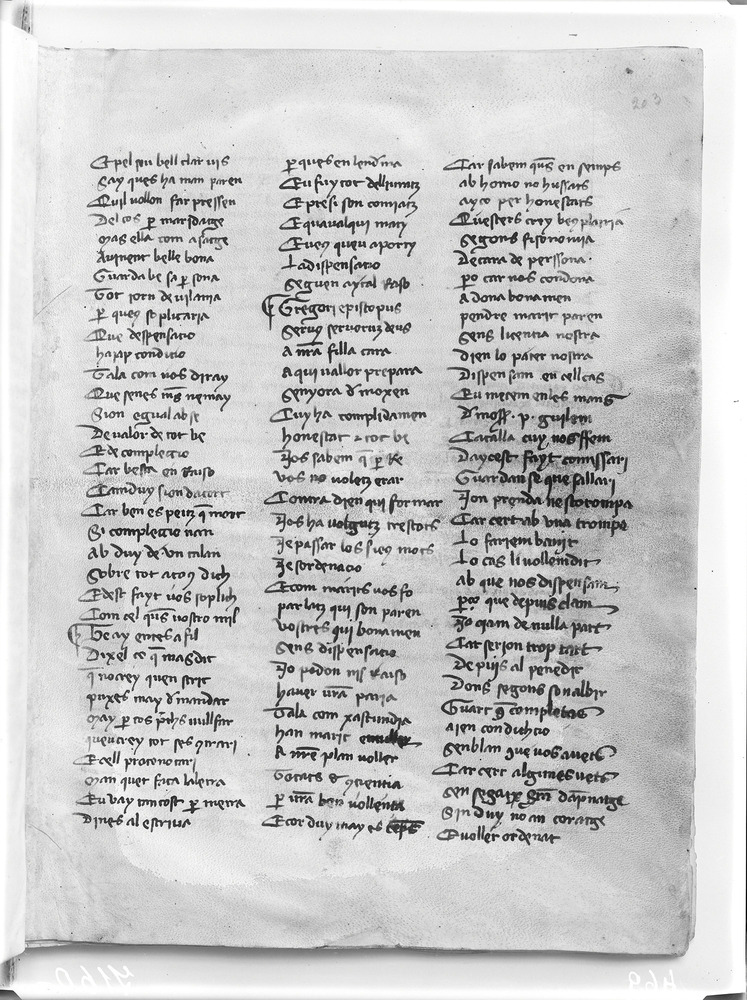 203
E pel seu bell clar vis
Say ques ha man paren
Quil vollon far pressen
Del cos p maridatge
Mas ella com a satge
Avinent belle bona
Guarda be sa p sona
Tot jorn de vilania
p quey suplicaria
Que despensacio
hajap condicio
Tala com vos diray
Que senes ms nemay
Sion egual abse
De valor de tot be
E de complexio
Car besta en Raiso
Camduy sion dacort
Car ben es peitz q mort
Si complexio nan
Ab duy de vn talan
Sobre tot aço q dich
E dest fayt vos soplich
Com cel qus vostro mil
Be ay entes a fil
Dixel ce q mas dit
q no crey quen scrit
puxes may d mandar
May p tos pchs vull far
queu crey tot ses 9trari
E cell protonotari
Man quer fica la letra
Eu vay tantost p metra
Dines al escriva
p ques en lendma
Eu fuy tot delliuratz
E presi son comiatz
E quavalqui maty
E vey queu aporty
La dispensacio
Seguen aytal Raso
Gregori episcopus
Servus servorum deus
A nra filla cara
A qui vallor prepara
Senyora d moxen
Cuy ha complidamen
honestat e tot be
Nos sabem q p Re
vos no voletz errar
Contra dieu qui formar
Nos ha volgutz trestots
Ne passar los sieus mots
Ne sordenacio
E com marits vos fo
parlatz qui son paren
vostres qui bonamen
Sens dispensacio
No podon nis Raiso
haver vra paria
Tala com xastundia
han marit e muller
A nre plan voller
Tocats d 9ciencia
p vra ben vollenta
E cor duy may es
Car sabem qus en semps
ab homo no hus fats
ayço per honestats
Questers crey bey plairia
Segons fisonomia
De cara de perssona
po car nos condona
a dona bonamen
pendre marit paren
Sens licencia nostra
dieu lo pater nostra
Dispensam en cell cas
Eu metem en les mans
D moss. p. guilem
Catalla cuy nos ffem
Daycest fayt comissari
Guardan se que fallari
Non prenda ne so trompa
Car cert ab vna trompa
Lo fariem banit
Lo cas li vollem dit
ab que nos dispensam
pço que depuis clam
No ojam de nulla part
Car serion trop tart
Depuis al penedir
Dons segons son albir
Guart 9 completos
aien condicio
Senblan que vos avets
Car cert algunes vets
sen segeix gm dapnatge
Sin duy no an coratge
E voller ordenat